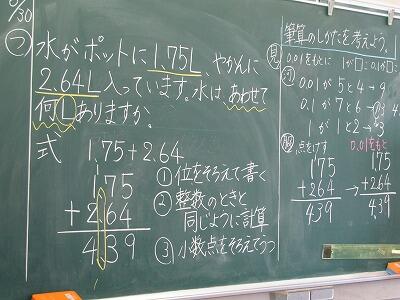 9/30
水がポットに1.75L、やかんに
2.64L入っています。水は、あわせて
何Lありますか。
式 1.75+2.64
1.75
+2.64
4.39
①位をそろえて書く
②整数のときと
同じように計算
③小数点をそろえてうつ
筆算のしかたを考えよう。
見 0.01をもとに 1が□こ0.1が□こ
0.01が 5と4→9
0.1が 7と6→
1が 1と2→3
点をけす
175
+264
439
→
0.01をもと
1.75
+2.64
4.39